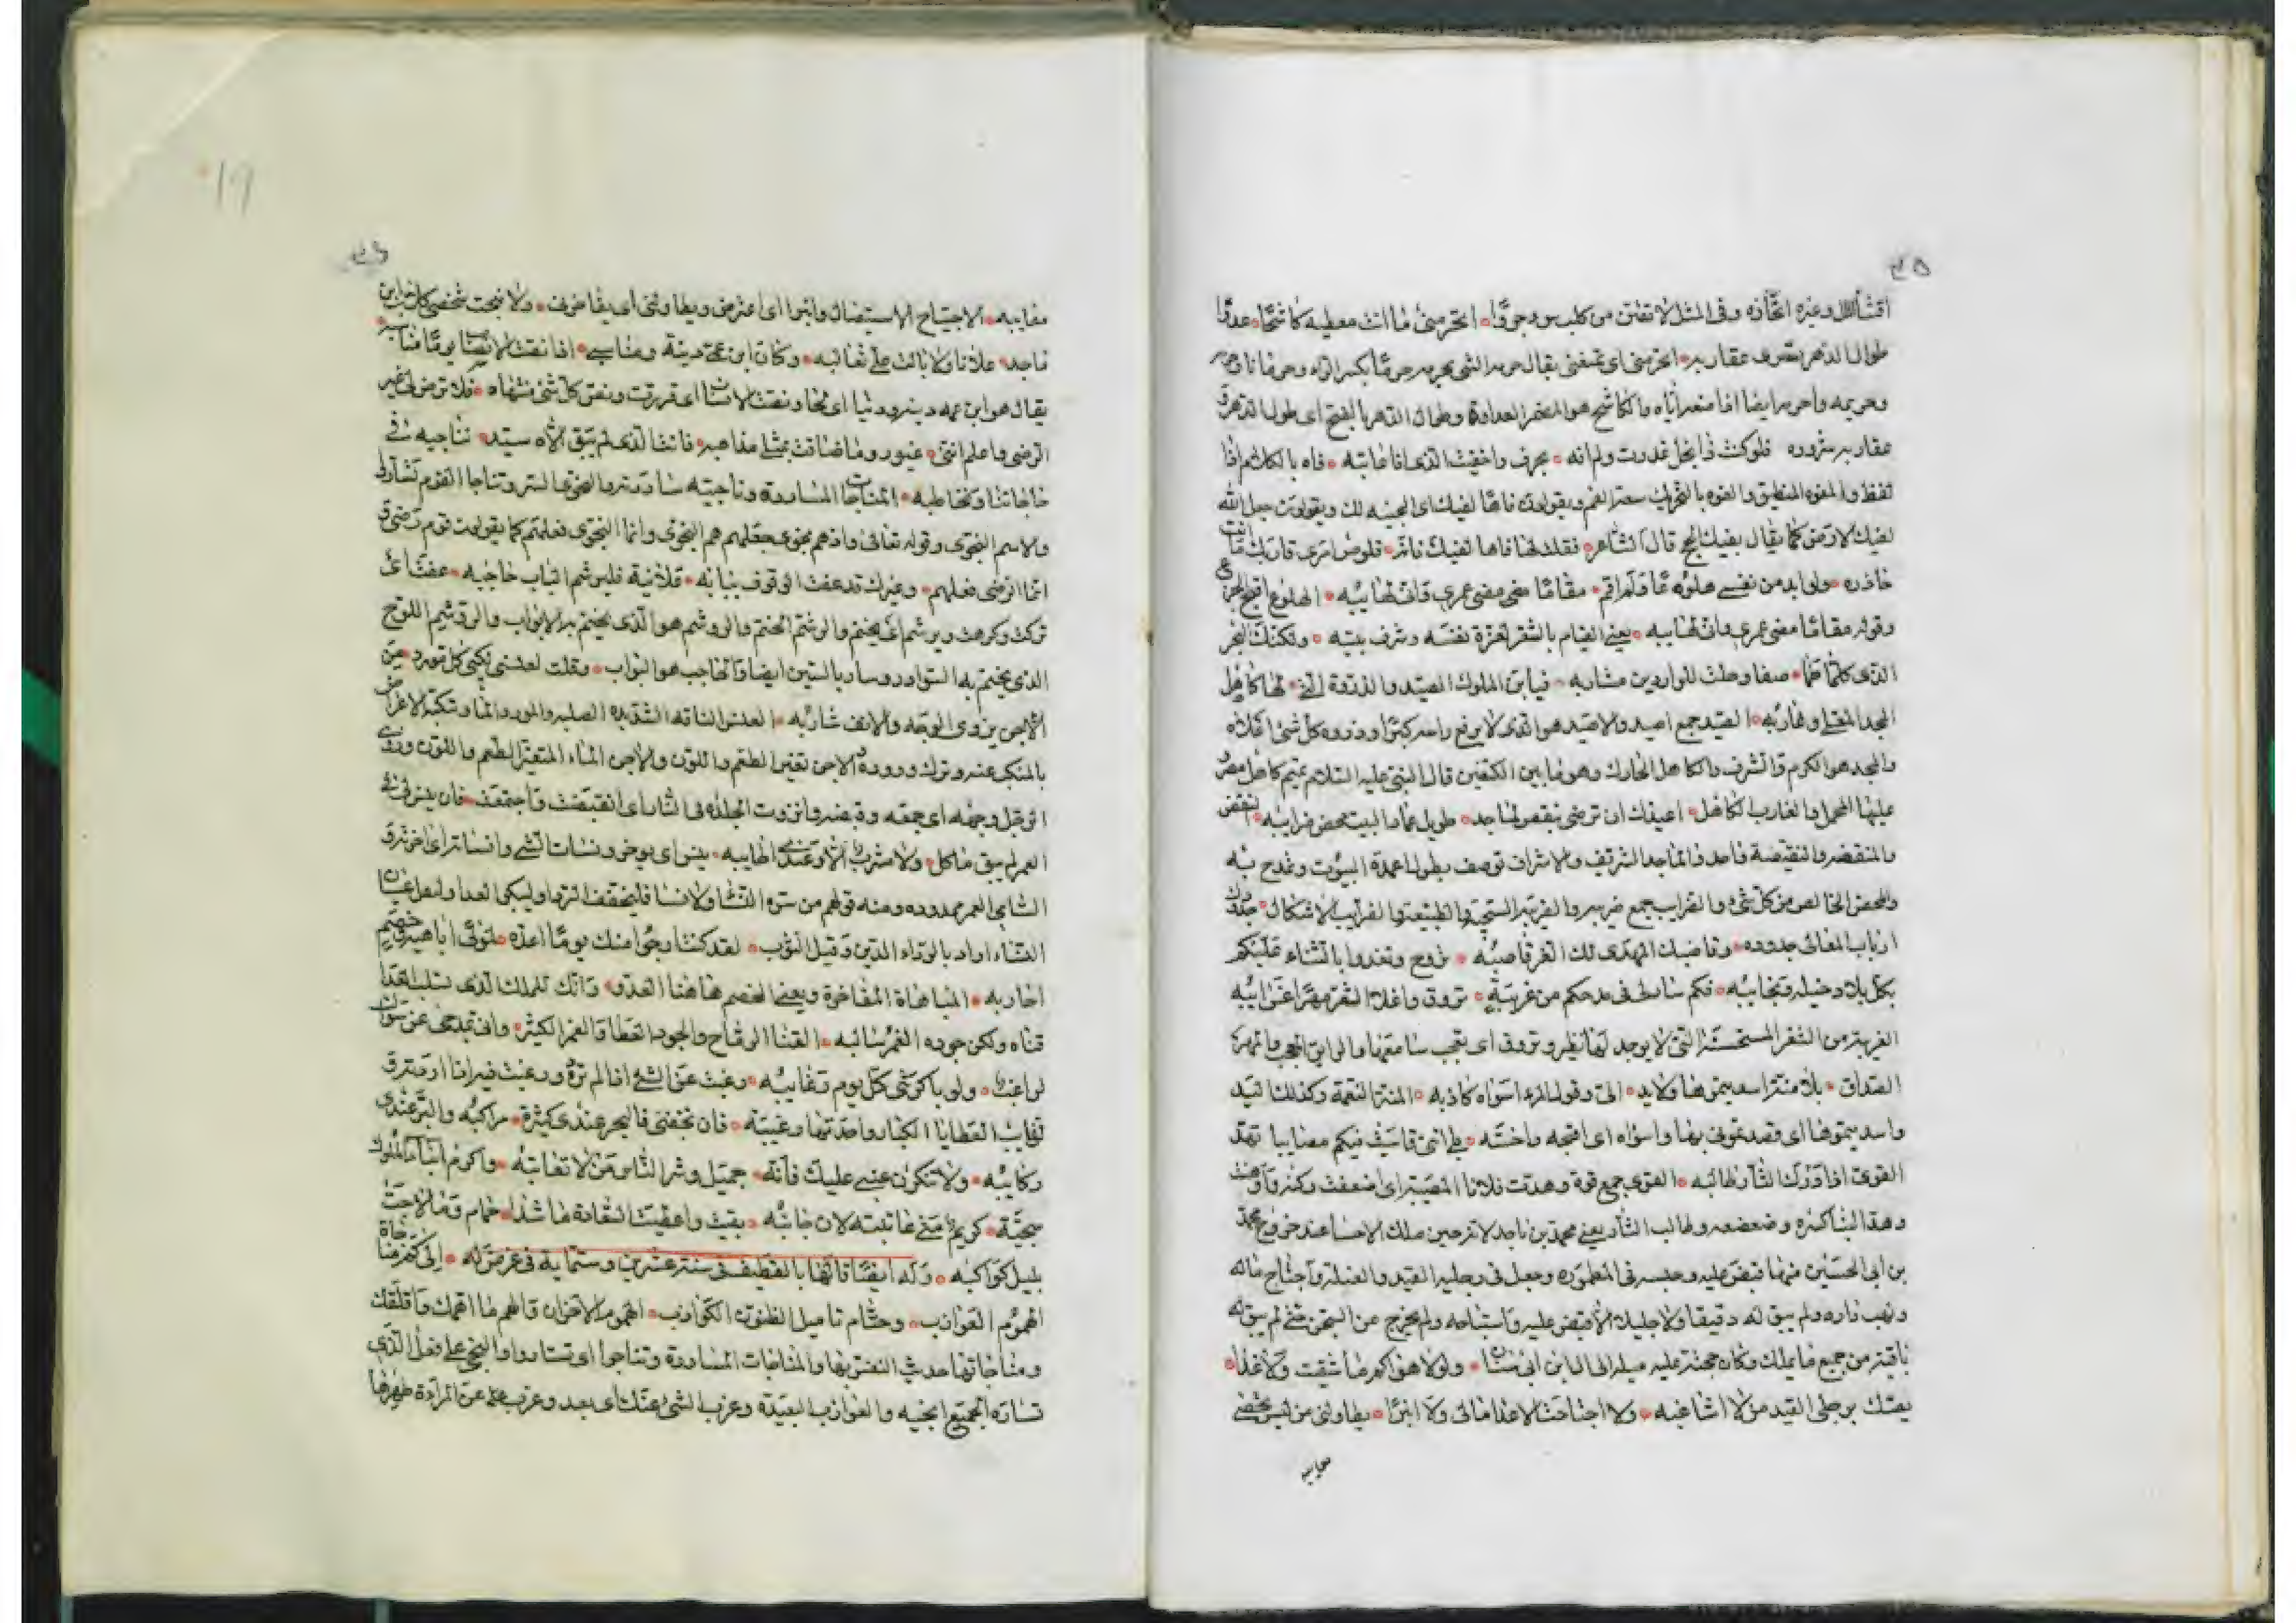 ٣٥
اقتنا المال وغيره اتخاذه وفي المثل لا تقتن من كلب سوء جروا اتحرمني ما انت معطيه كاشحا عدوا
طوال الدهر تسري عقاربه اتحرمني اي تمنعني يقال حرمه الشي يحرمه حرما بكسر الراء وحرمانا
وحريمه واحرمه ايضا اذا منعه اياه والكاشح هو المضمر العداوة وطوال الدهر بالفتح اي طول الدهر
عقاربه شروره فلو كنت ذا بخل غدرت ولم انه بحرف واخفيت الذي انا عاتبه فاه بالكلام اذا
لفظ والمفوه المنطيق والفوه بالتحريك سعة الفم ويقولون فاها لفيك اي الخيبة لك ويقولون جعل الله
لفيك الارض كما يقال بفيك الحجر قال الشاعر فقلت لها فاها لفيك فانه قلوص امرئ قاريك ما انت
حاذره ولي ابد من نفسي علوه عما ولم اقم مقاما مضى عمري وانت تهايبه الهلوع اقبح الجزع
وقوله مقاما مضى عمري وانت تهايبه يعني القيام بالشعر لعزة نفسه وشرف بيته ولكنك البحر
الذي كلما طما صفا وحلت للواردين مشاربه فيا ابن الملوك الصيد والذروة التي لها كاهل
المجد المعلى وغاربه الصيد جمع اصيد والاصيد هو الذي لا يرفع راسه كبرا وذروه كل شئ اعلاه
والمجد هو الكرم والشرف والكاهل الحارك وهو ما بين الكتفين قال النبي عليه السلام تميم كاهل مضر
عليها المحمل والغارب الكاهل اعيذك ان ترضى بنقص لماجد طويل عماد البيت محض ضرايبه النقص
والمنقصه والنقيصة واحد والماجد الشريف والاشراف توصف بطول اعمدة البيوت وتمدح به
والمحض الخالص من كل شيء والضرايب جمع ضريبه والضريبه السجية والطبيعة والضرايب الاشكال
ارباب المعالي جدوده وقاضيك المهدى لك الغر قاصبه نروح ونغدوا بالثناء عليكم
بكل بلاد خيله ونجايبه فكم سار لي في مدحكم من غريبة تروق واغلا الشعر مهرا غرايبه
الغريبة من الشعر المستحسنة التي لا يوجد لها نظير وتروق اي تعجب سامعها والرايق المعجب والمهر
الصداق بلا منة اسديموها ولا يد الي وقول المرء اسواه كاذبه المنة النعمة وكذلك اليد
واسديموها اي وصلتموني بها واسواه اي اقبحه واخسه على انني قاسيت فيكم مصايبا تهد
القوى اذ ادرك الثار طالبه القوى جمع قوة وهدت فلانا المصيبة اي اضعفته وكسرته واوهنت
وهد البناء كسره وضعضعه وطالب الثار يعني محمد بن ماجد لانه حين ملك الاحسا عند خروج محمد
بن ابي الحسين منها قبض عليه وحبسه في المطموره وجعل في رجليه القيد والعتله واجتاح ماله
ونهب داره ولم يبق له دقيقا ولا جليلا الا قبض عليه واستباحه ولم يخرج من السجن حتى لم يبق له
باقية من جميع ما يملك وكان حجته عليه ميله الى ابن ابي سنان ولولا هواكم ما شقيت ولا غدا
يعتك برجلي القيد من لا اشاغبه ولا اجتاحت الاعدا مالي ولا انبرا يطاولني من ليس يخفى
معايبه
19
٣٦
معايبه الاجتياح الاستيصال وانبرا اي اعترض ويطاولني اي يفاخرني ولا ضجت شخصي كل باب ابن
ماجد علانا ولا بالت علي ثعالبه وكان ابن عمي دنية ومناسبي اذا نصت الانساب يوما مناسبه
يقال هو ابن عمه دنية ودنيا اي لحا ونصت الانساب اي قررت ونص كل شئ منتهاه فلا ترض لي غير
الرضى واعلم انني غيور وما ضاقت بمثلي مذاهبه فانت الذي لم يبق الاه سيد نناجيه في
حاجاتنا ونخاطبه المناجات المسارة وناجيته ساررته والنجوى السر وتناجا القوم تسارلوا
والاسم النجوى وقوله تعالى واذ هم نجوى جعلهم هم النجوى وانما النجوى فعلهم كما يقولون قوم رضى و
انما الرضى فعلهم وغيرك قد عفت الوقوف ببابه علانية فليرشم الباب حاجبه عفت اي
تركت وكرهت ويرشم اي يختم والرشم الختم والروشم هو الذي يختم به الابواب والروشم اللوح
الذي يختم به السواد وروسم ايضا بالسين ايضا والحاجب هو البواب وقلت لعنسي نكبي كل مورد من
الآجن يزوي الوجه والانف شاربه العنس الناقه الشديده الصلبه والمورد الماء ونكبته الاعراض
بالمنكب عنه وترك وروده الاجن تغير الطعم واللون والاجن الماء المتغير الطعم واللون وزوى
الرجل وجهه اي جمعه وقبضه وانزوت الجلده في النار اي انقبضت واجتمعت فان ينس لي في
العمر لم يبق ماكل ولا مشرب الا وعندي اطايبه ينس اي يوخر ونسات الشي وانساته اي اخرته و
النسا في العمر ممدوده ومنه قولهم من سره النسا ولا نسا فليخفف الردا وليبكر الغدا وليقل غشيان
النساء اراد بالرداء الدين وقيل الثوب لقد كنت ارجو منك يوما اعده لنوئي اباهي به خصيم
احاربه المباهاة المفاخرة ويعني الخصم هاهنا العدو وانك للملك الذي سلب العدا
قناه ولكن جوده الغمر سالبه القنا الرماح والجود العطا والغمر الكثير واني بمدحي عن سواك
لراغب ولو باكرتني كل يوم رغايبه رغبت عن الشئ اذا لم ترده ورغبت فيه اذا اردته و
الرغايب العطايا الكبار واحدتها رغيبة فان تجفني فالبحر عندي كثيرة مراكبه والبر عندي
ركايبه ولا تنكرن عتبي عليك فانه جميل وشر الناس من لا تعاتبه واكرم ابناء الملوك
سجية كريم متى عاتبته لان جانبه بقيت واعقبت السعادة ما شدا حمام وما لاحت
بليل كواكبه وله ايضا قالها بالقطيف في سنة عشرين وستماية في غرض له الى كم مناجاة
الهموم العوازب وحتام تاميل الظنون الكواذب الهموم الاحزان والهم ما اهمك واقلقك
ومناجاتها حديث النفس بها والمناجات المساررة وتناجوا اي تسارروا والنجي على فعيل الذي
تساره الجميع الانجيه والعوازب البعيدة وعزب الشئ عنك اي بعد وعزب عن المراة طهرها